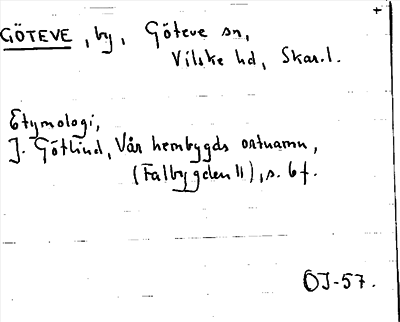 GÖTEVE, by, Göteve sn,
Vilske hd, Skar.l.
Etymologi,
J. Götlind, Vår hembygds ortnamn,
(Falbygden II), s. 6f.
OJ-57.